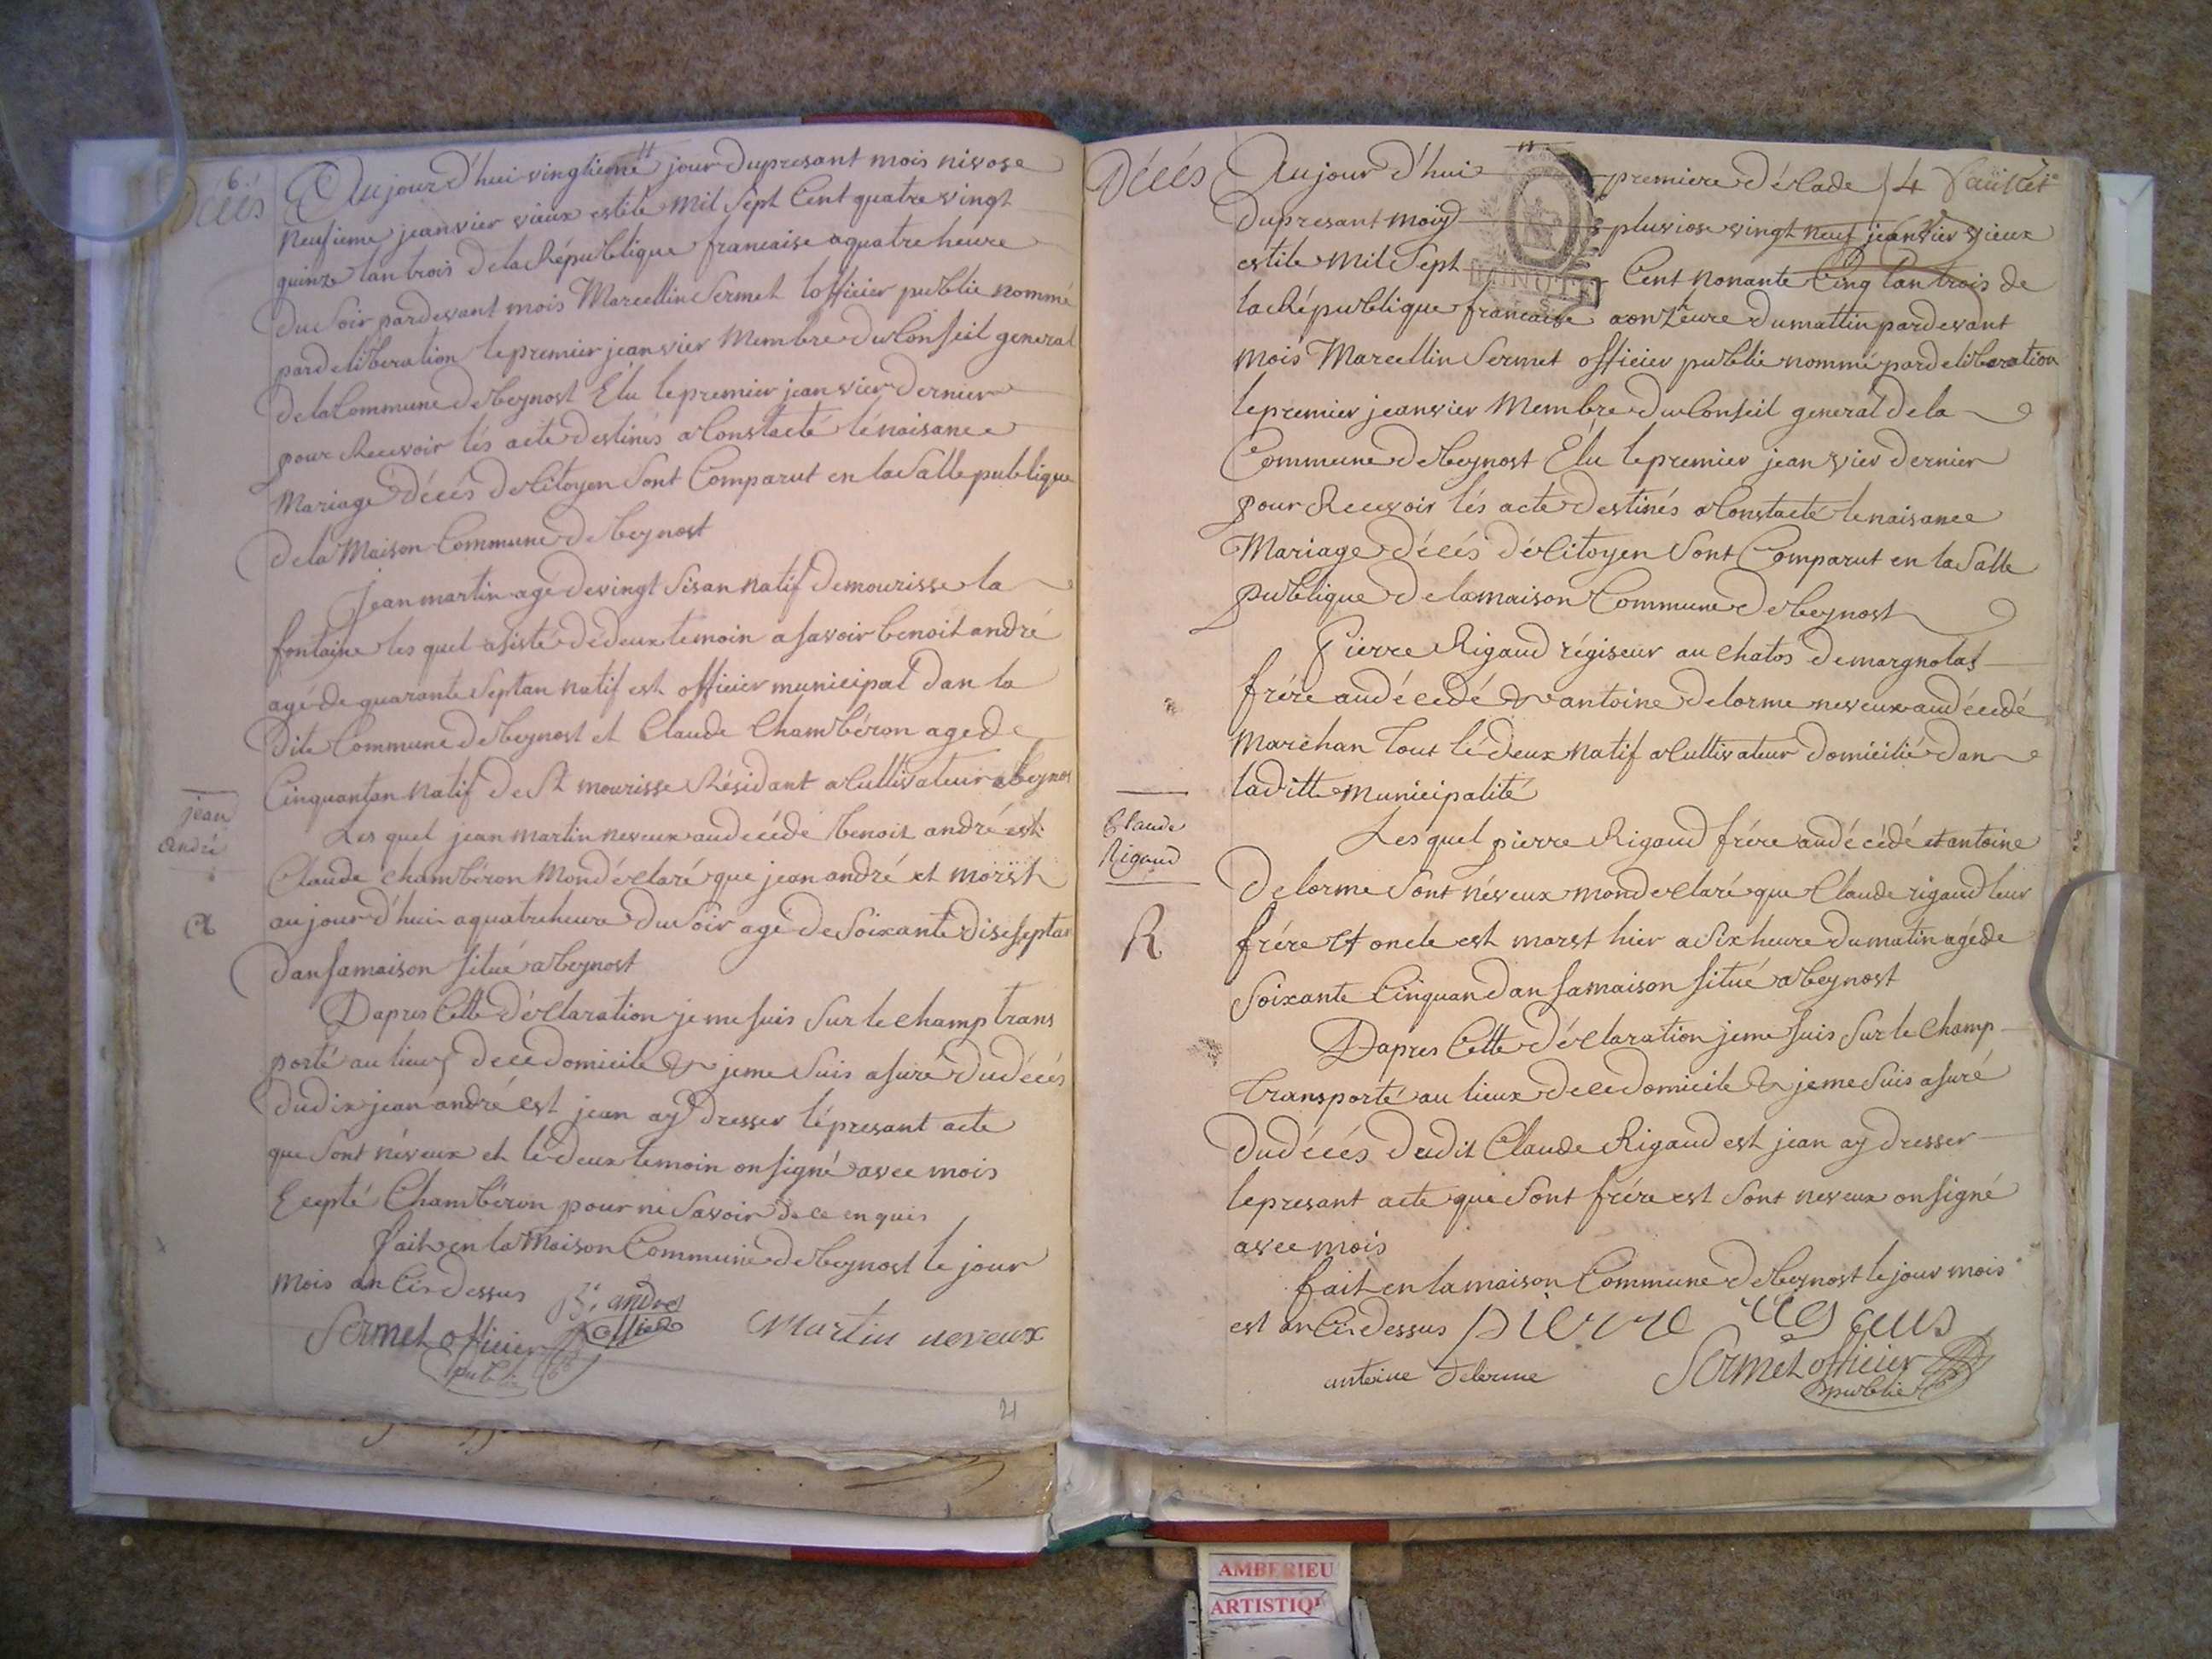 6
Décés
Aujourd'hui vingtieme jour dupresant mois nivose
neufieme jeanvier vieux estile mil Sept Cent quatre vingt
quinze lan trois de la République francaise a quatre héure
du Soir pardevant mois Marcellin Sermet lofficier publie nommé
pardeliberation le premier jeanvier Membre du Conseil general
de la Commune de beynost Élu le premier jeanvier dernier
pour Recevoir lés acte destinés a Constacté lénaisance
Mariage décés de Citoyen Sont Comparut en la Salle publique
de la Maison Commune de beynost
Jean martin agé de vingt Sisan natif de mourisse la
fontaine les quel asisté de deux temoin a savoir benoit andré
agé de quarante Septan natif est officier municipal dan la
dite Commune de beynost et Claude Chambéron age de
Cinquantan natif de St mourisse Résidant a Cultivateur a beynos
jean
andré
Les quel jean martin neveux au decédé benoit andré est
Claude Chambéron mon déclaré que jean andré et morst
aujourd'hui a quatre heure du Soir agé de Soixante diseseptan
dan sa maison situé a beynost
Dapres Cette déclaration je me suis Sur le champ trans
porté au lieux de ce domicile & je me Suis asuré du décés
du dix jean andré est jean ay dresser lé presant acte
que Sont néveux et lé deux temoin on signé avec mois
Ecepté Chambéron pour ne Savoir de ce enquis
fait en la Maison Commune de beynost le jour
mois an Cis dessus
andre
officié
Sermet officier
publie
Martin neveux
21
Décés
Aujourd'hui premiere décade 4
du presant mois pluviose vingt neuf jeanvier vieux
estile mil Sept Cent nonante Cinq lan trois de
la République francaise a onz heure du mattin pardevant
mois Marcellin Sermet officier publie nommé pardeliberation
le premier jeanvier Membre du Conseil general de la
Commune de beynost Élu le premier jeanvier dernier
pour Recevoir lés acte destinés a Constacté lenaisance
Mariage décés dé Citoyen Sont Comparut en la Salle
publique de la maison Commune de beynost
Pierre Rigaud régiseur au chatos de margnolas
frére au décedé & antoine delorme neveux au décedé
marchan tout lé deux natif a Cultivateur domicilié dan
la ditte municipalité
Claude
Rigaud
Les quel pierre Rigaud frére au décédé et antoine
delorme Sont néveux mon declaré que Claude rigaud leur
R
frére et oncle est morst hier a Six heure du matin agé de
Soixante Cinquan dan sa maison situé a beynost
Dapres Cette déclaration je me suis Sur le Champ
transporté au lieux de ce domicile & je me Suis asuré
du décés du dit Claude Rigaud est jean ay dresser
le presant acte que Sont frére est Sont neveux on signé
avec mois
fait en la maison Commune de beynost le jour mois
est an Cis dessus pierre
antoine delorme
Sermet officier
publie
AMBERIEU
ARTISTIQ